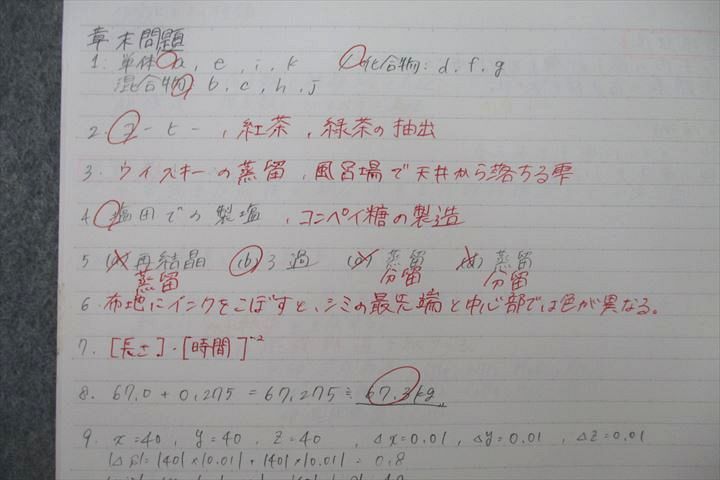 章末問題
1. 単体: a, e, i, k 化合物: d, f, g
混合物: b, c, h, j
2. コーヒー, 紅茶, 緑茶の抽出
3. ウィスキーの蒸留, 風呂場で天井から落ちる雫
4. 塩田での製塩, コンペイ糖の製造
5 (a) 再結晶 (b) ろ過 (c) 蒸留 (d) 蒸留
蒸留 分留 分留
6. 布地にインクをこぼすと、シミの最先端と中心部では色が異なる。
7. [長さ]・[時間]⁻²
8. 67.0 + 0.275 = 67.275 ≒ 67.3kg
9. x=40, y=40, z=40, Δx=0.01, Δy=0.01, Δz=0.01
= |40|×|0.01| + |40|×|0.01| = 0.8